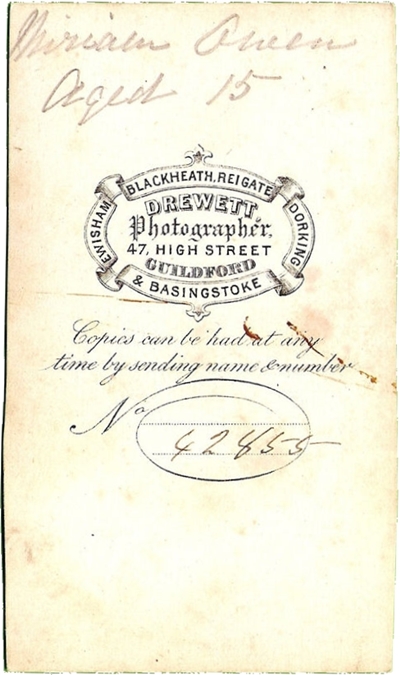 Miriam Owen
Aged 15
BLACKHEATH, REIGATE
EWISHAM
DORKING
DREWETT
Photographer,
47, HIGH STREET
GUILDFORD
& BASINGSTOKE
Copies can be had at any
time by sending name & number
No
42855